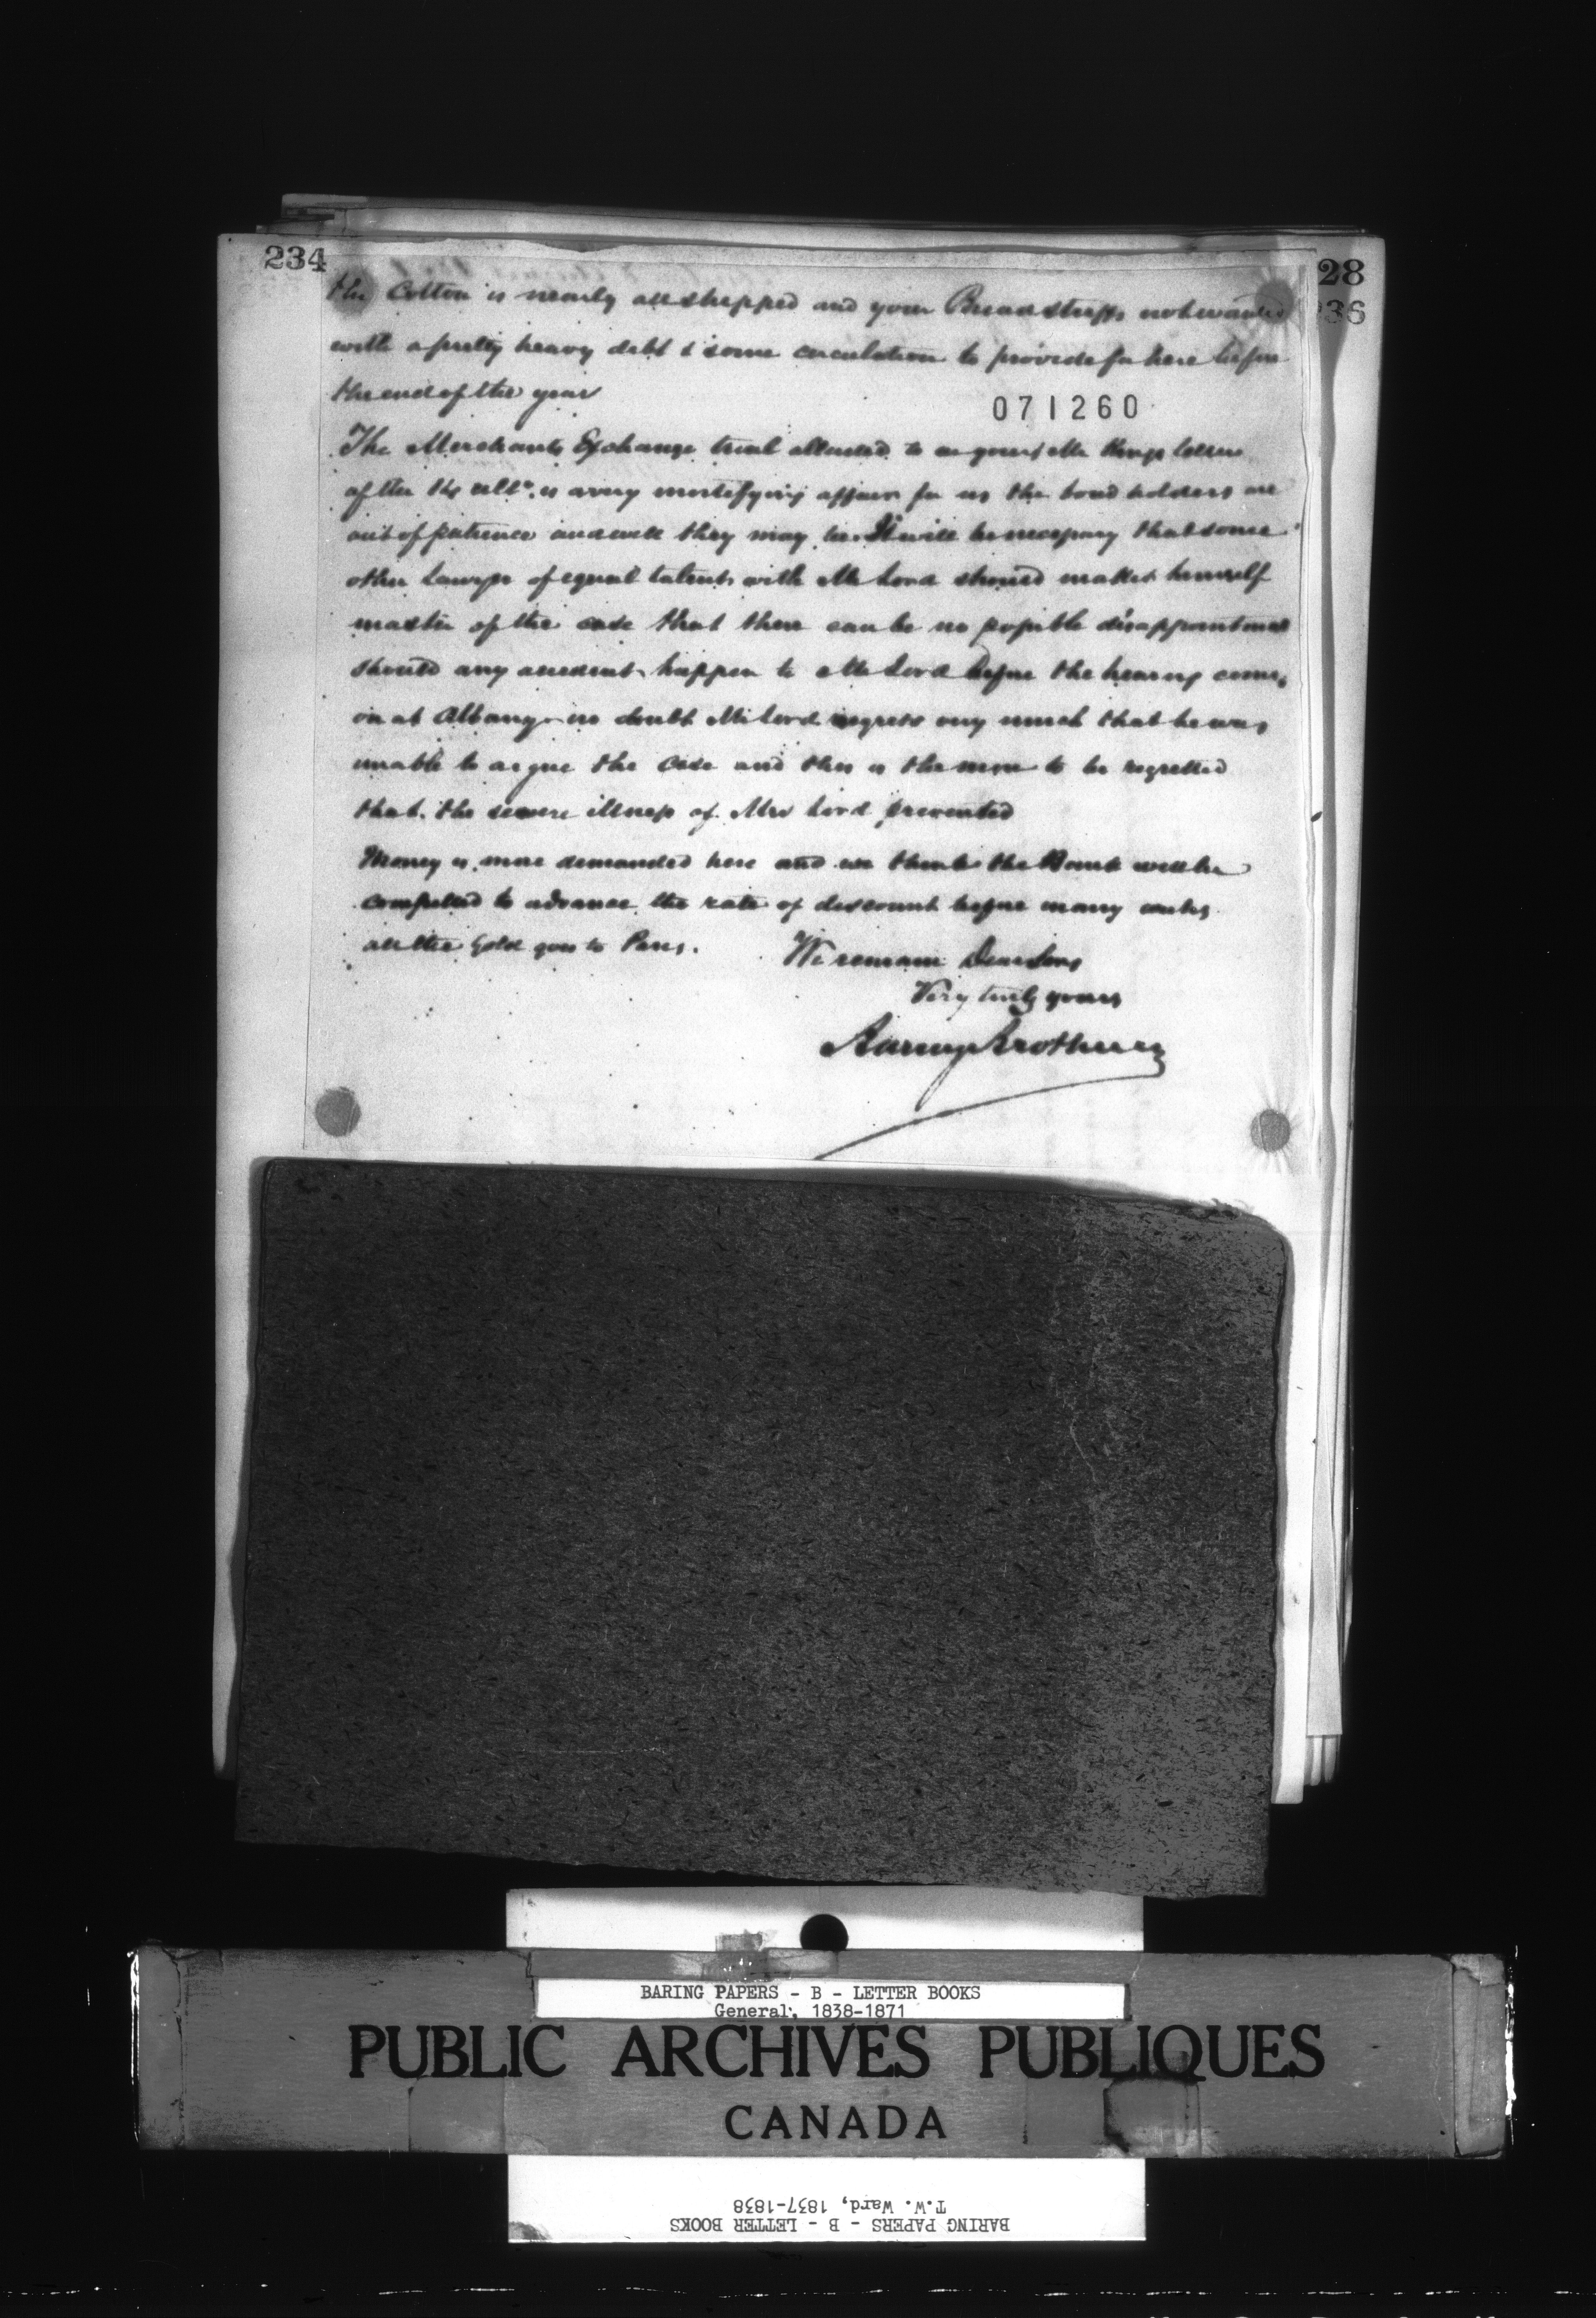 234
28
236
the Cotton is nearly all shipped and your Breadstuffs not wanted
with a pretty heavy debt & some circulation to provide for here before
the end of the year
071260
The Merchants Exchange trial alluded to in yours & Mr Kings letters
of the ult°. is a very mortifying affair for us the bond holders are
out of patience and well they may be. It will be necessary that some
other Lawyer of equal talents with Mr Lord should make himself
master of the case that there can be no possible disappointment
should any accident happen to Mr Lord before the hearing comes
on at Albany - no doubt Mr Lord regrets very much that he was
unable to argue the Case and this is the more to be regretted
that the severe illness of Mrs Lord prevented
Money is more demanded here and we think the Bank will be
compelled to advance the rate of discount before many weeks
all the Gold goes to Paris.
We remain Dear Sirs
Very truly yours
Baring Brothers
BARING PAPERS - B - LETTER BOOKS
General, 1838-1871
PUBLIC ARCHIVES PUBLIQUES
CANADA
T.W. Ward, 1837-1838
BARING PAPERS - B - LETTER BOOKS